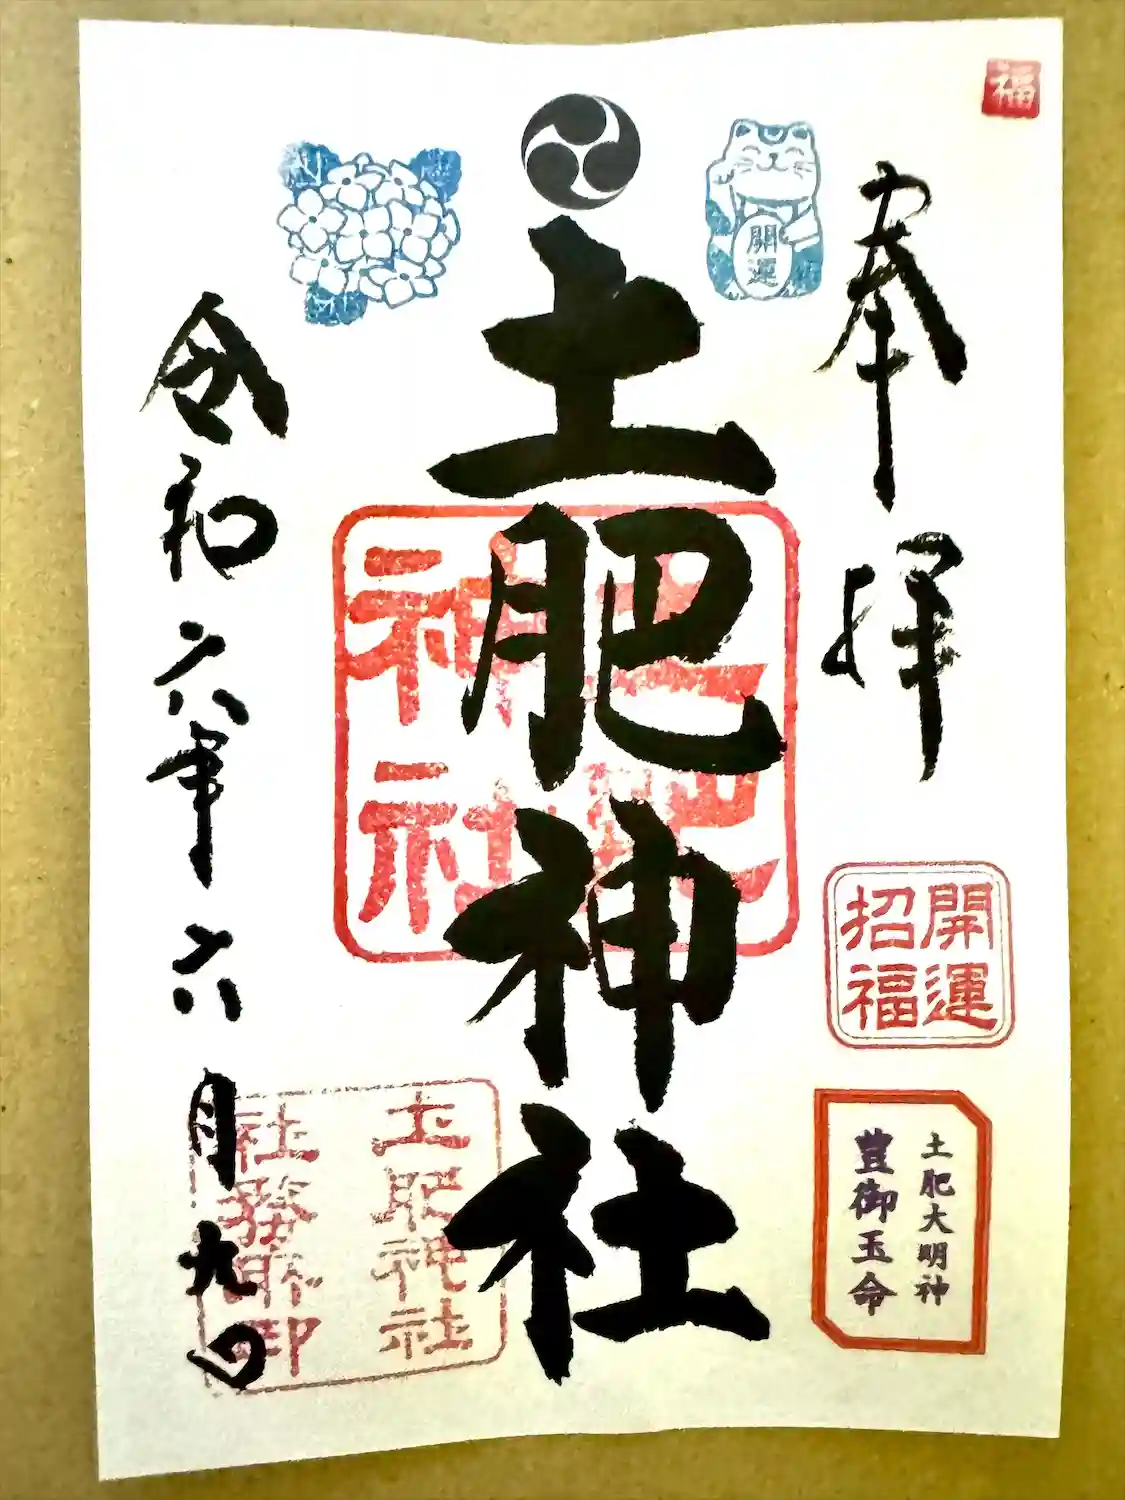 福
奉拝
開運
招福
土肥大明神
豊御玉命
開運
土肥神社
土肥
神社
土肥神社
社務所印
令和六年六月九日